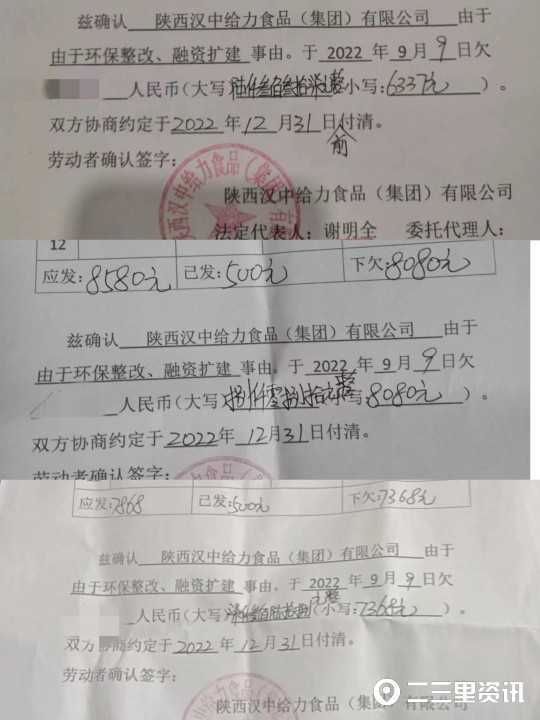 兹确认 陕西汉中给力食品（集团）有限公司 由于
由于环保整改、融资扩建 事由。于 2022 年 9 月 9 日欠
人民币（大写 陆仟叁佰叁拾柒元整 小写：6337元 ）。
双方协商约定于 2022 年 12 月 31 日付清。
前
劳动者确认签字：
陕西汉中给力食品（集团）有限公司
法定代表人：谢明全 委托代理人：
12
应发：8580元 已发：500元 下欠：8080元
兹确认 陕西汉中给力食品（集团）有限公司 由于
由于环保整改、融资扩建 事由。于 2022 年 9 月 9 日欠
人民币（大写 捌仟零捌拾元整 写：8080元 ）。
双方协商约定于 2022 年 12 月 31 日付清。
劳动者确认签字：
应发：7868 已发：500元 下欠：7368元
兹确认 陕西汉中给力食品（集团）有限公司 由于
由于环保整改、融资扩建 事由。于 2022 年 9 月 9 日欠
人民币（大写 柒仟叁佰陆拾捌元整（小写：7368元 ）。
双方协商约定于 2022 年 12 月 31 日付清。
劳动者确认签字：
陕西汉中给力食品（集团）有限公司
二三里资讯